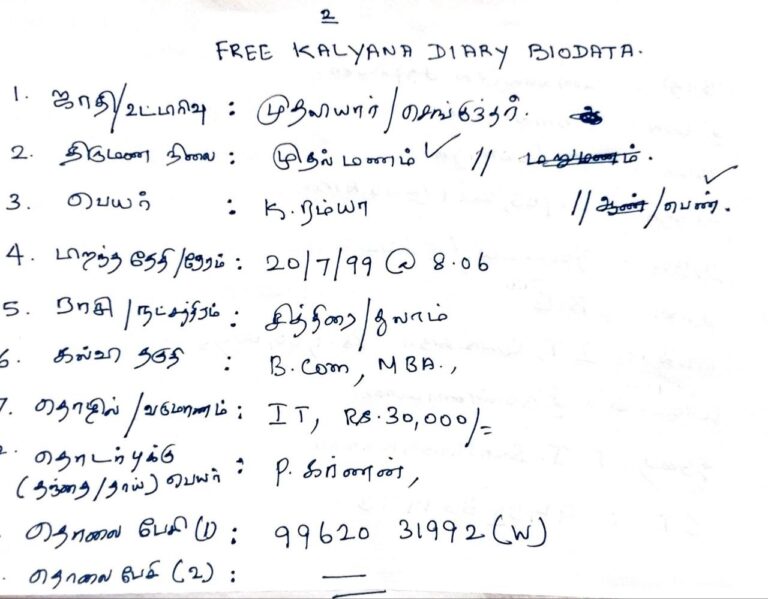 2
FREE KALYANA DIARY BIODATA.
1. ஜாதி/உட்பிரிவு : முதலியார்/செங்குந்தர்.
2. திருமண நிலை : முதல் மணம் ✓ // மறுமணம்.
3. பெயர் : க. ரம்யா // ஆண்/பெண். ✓
4. பிறந்த தேதி/நேரம் : 20/7/99 @ 8.06
5. ராசி/நட்சத்திரம் : சித்திரை/துலாம்
6. கல்வி தகுதி : B.Com, MBA.,
7. தொழில்/வருமானம் : IT, Rs. 30,000/=
தொடர்புக்கு
(தந்தை/தாய்) பெயர் : P. கர்ணன்,
தொலை பேசி (1) : 99620 31992 (W)
தொலை பேசி (2) : —